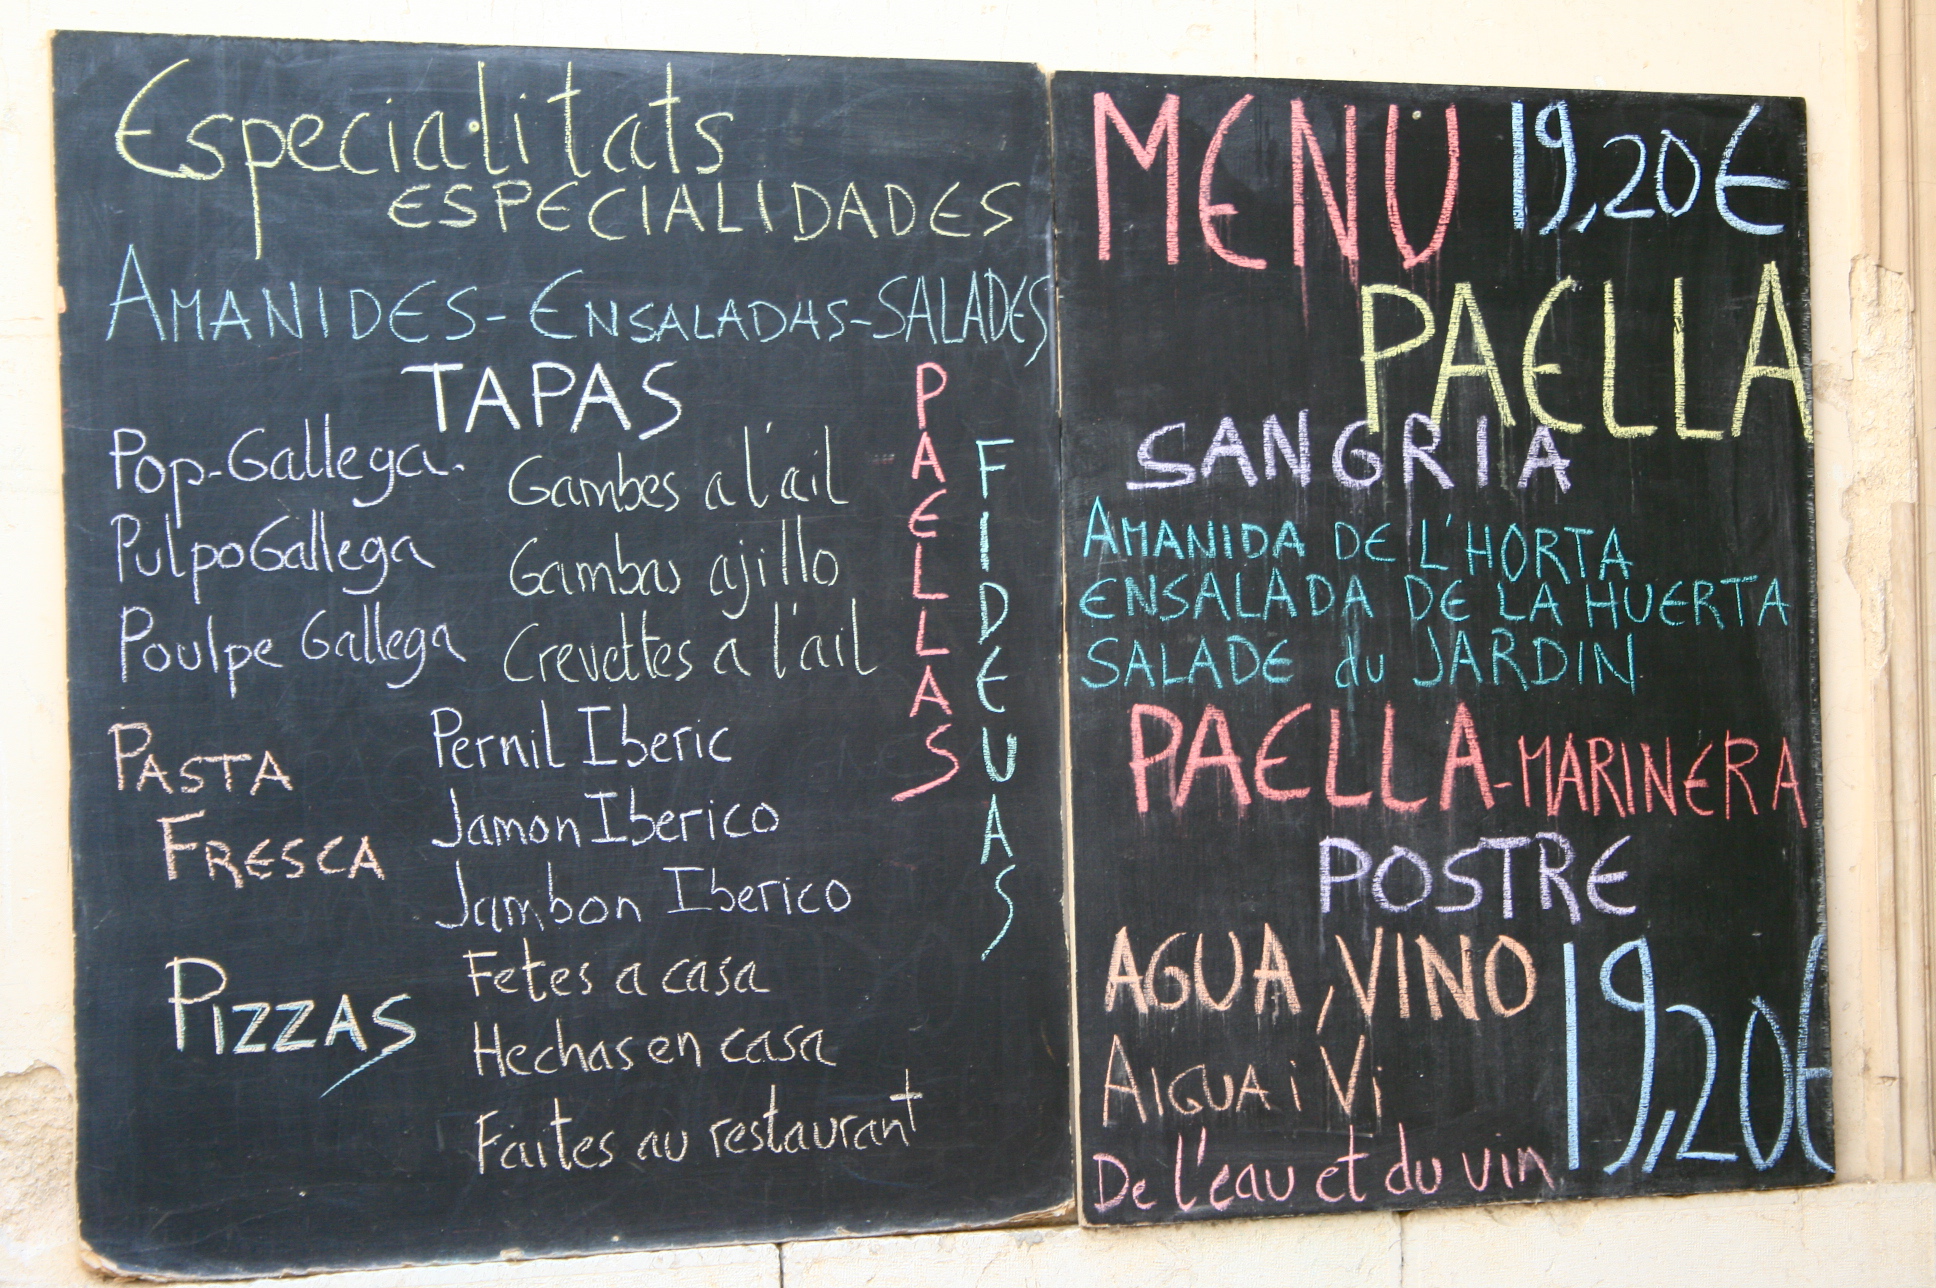 Especialitats
ESPECIALIDADES
AMANIDES-ENSALADAS-SALADES
TAPAS
Pop-Gallega.
Pulpo Gallega
Poulpe Gallega
Gambes a l'ail
Gambas ajillo
Crevettes a l'ail
PAELLAS
FIDEUAS
PASTA
FRESCA
Pernil Iberic
Jamon Iberico
Jambon Iberico
PIZZAS
Fetes a casa
Hechas en casa
Faites au restaurant
MENU 19,20€
PAELLA
SANGRIA
AMANIDA DE L'HORTA
ENSALADA DE LA HUERTA
SALADE du JARDIN
PAELLA-MARINERA
POSTRE
AGUA, VINO
AIGUA i Vi
De l'eau et du vin
19,20€